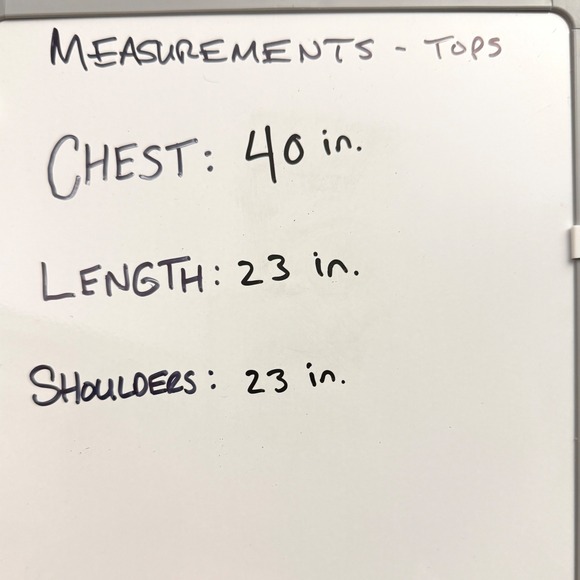 MEASUREMENTS - TOPS
CHEST: 40 in.
LENGTH: 23 in.
SHOULDERS: 23 in.